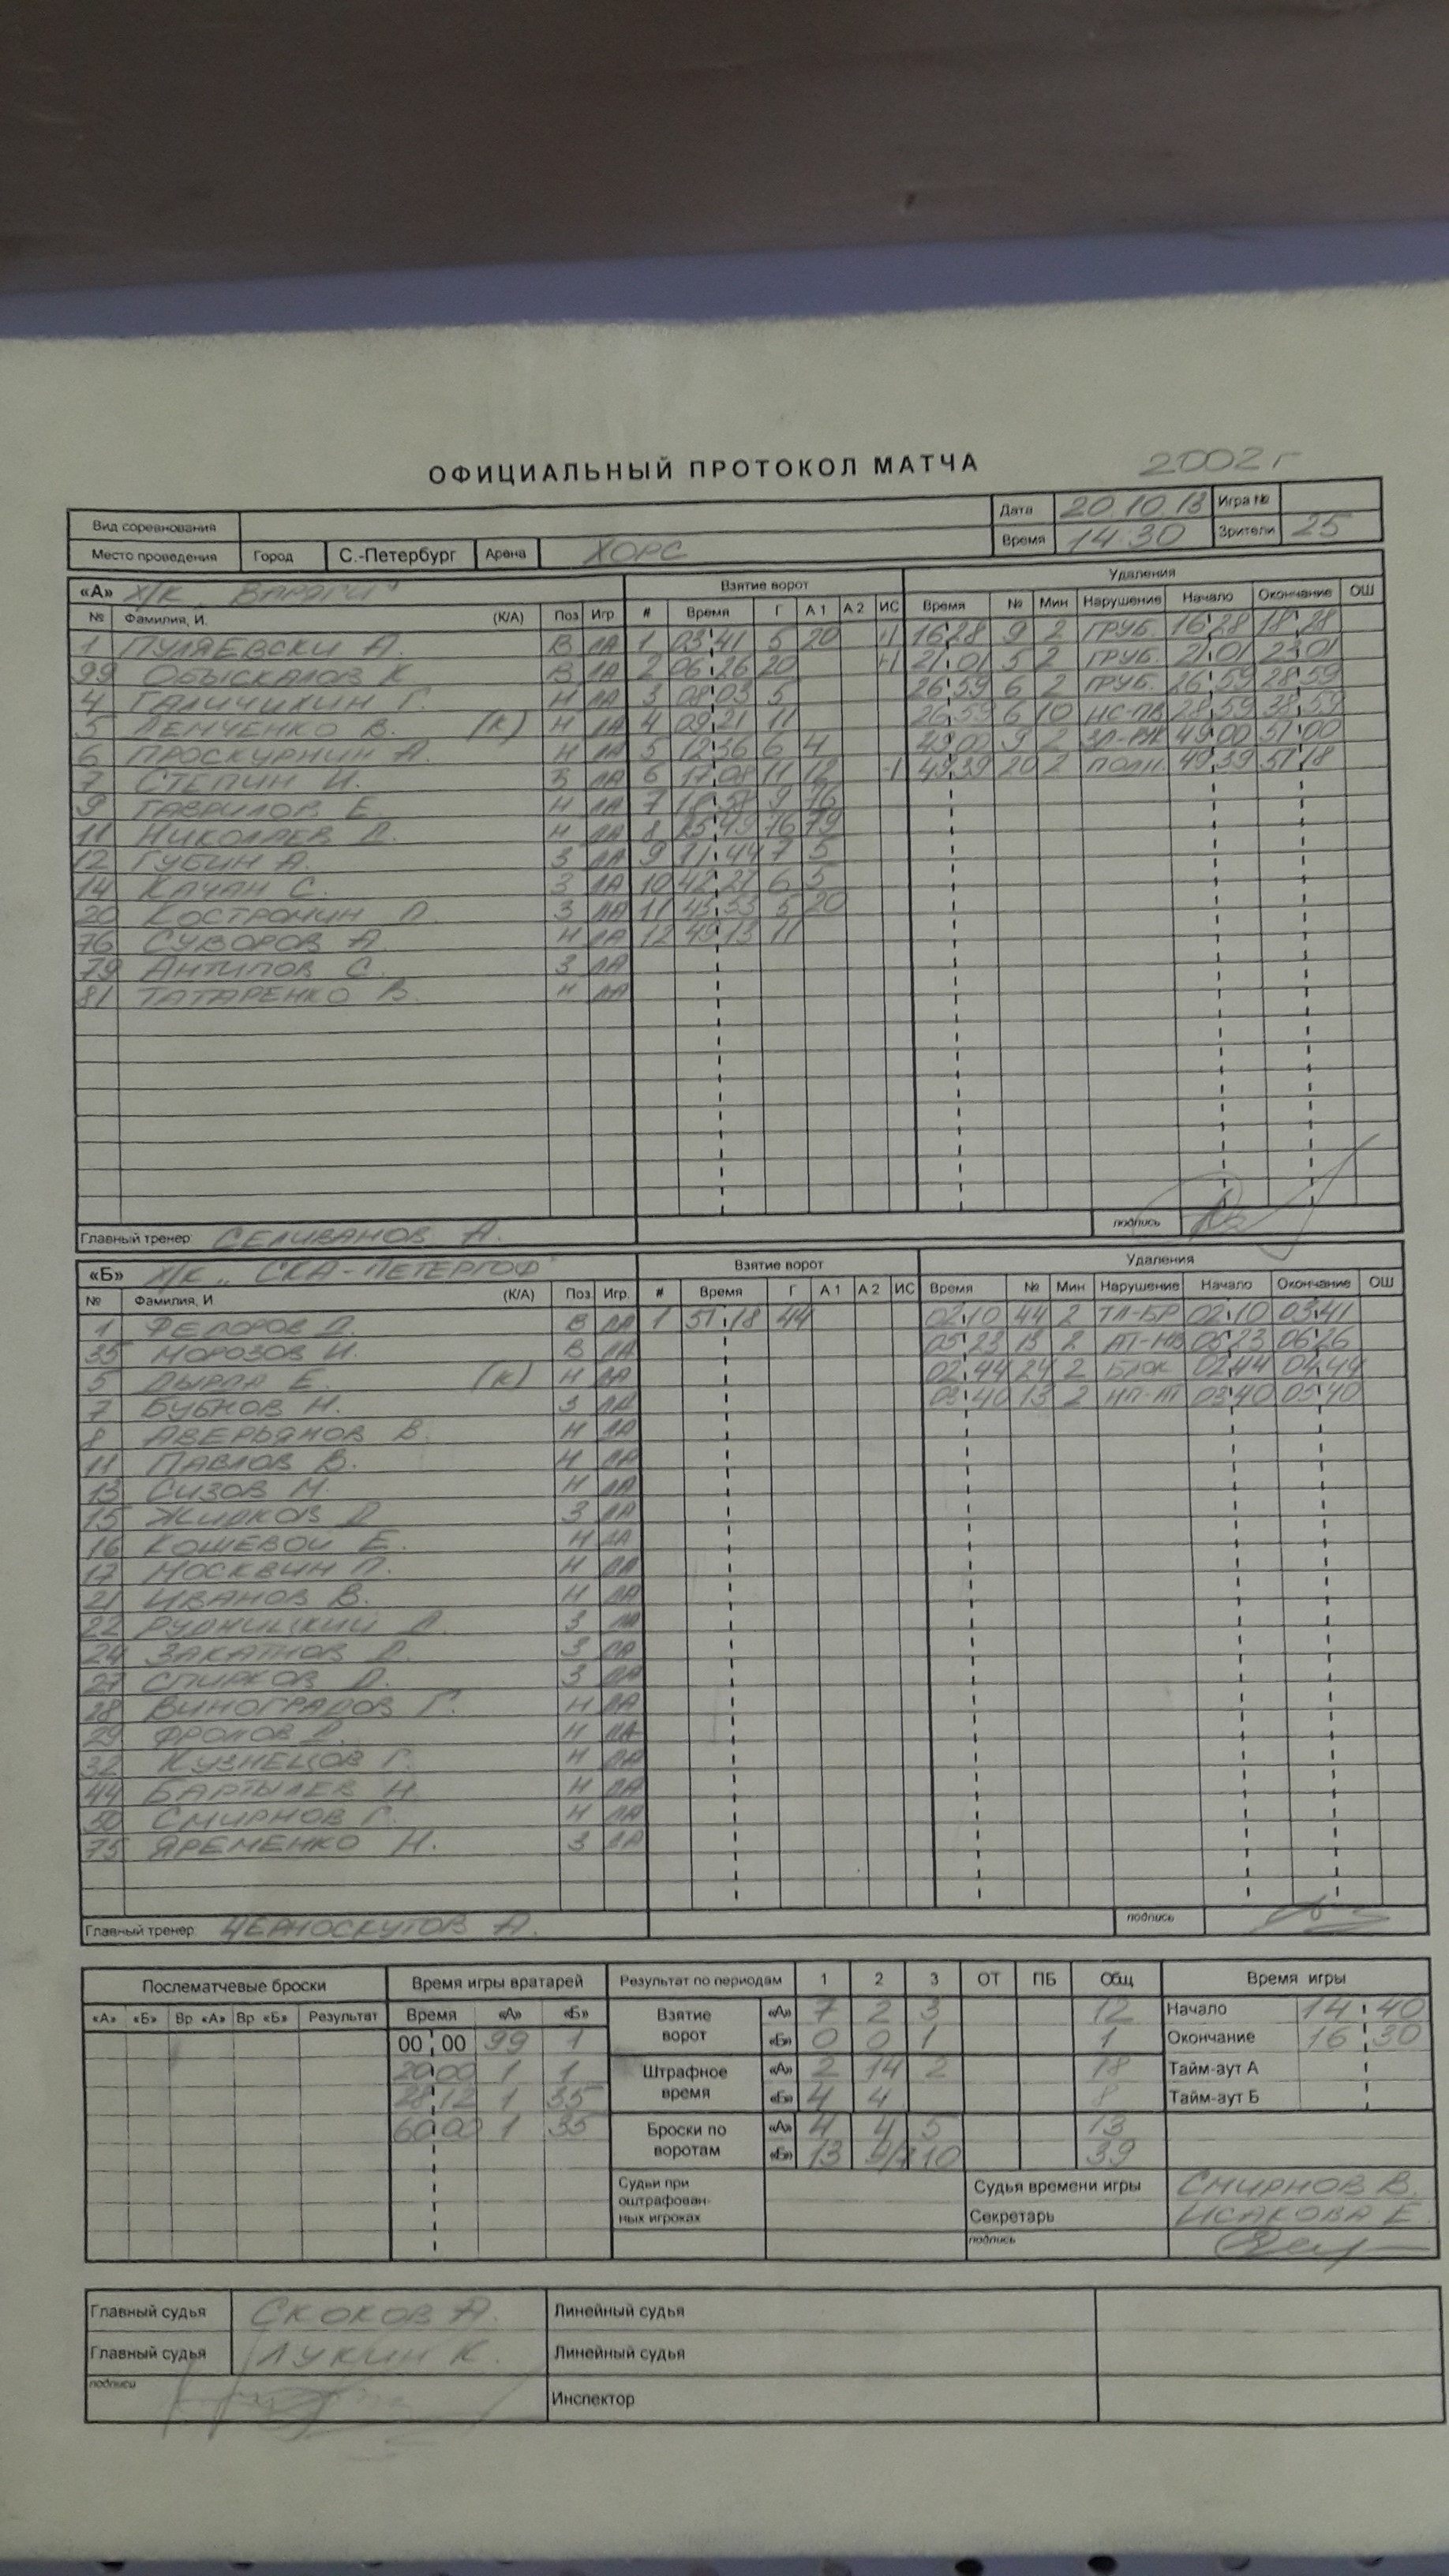 ОФИЦИАЛЬНЫЙ ПРОТОКОЛ МАТЧА 2002 г
Вид соревнования Дата 20.10.13 Игра №
Место проведения Город С.-Петербург Арена ХОРС Время 14:30 Зрители 25
«А» Х/К "ВАРЯГИ" Взятие ворот Удаления
№ Фамилия, И. (К/А) Поз Игр # Время Г А 1 А 2 ИС Время № Мин Нарушение Начало Окончание ОШ
1 ПУЛЯЕВСКИ А. В ДА 1 03:41 5 20 +1 16:28 9 2 ГРУБ. 16:28 18:28
99 ОБЫСКАЛОВ К В ДА 2 06:26 20 +1 21:01 5 2 ГРУБ. 21:01 23:01
4 ГАЛИЧИХИН Г. Н ДА 3 08:03 5 26:59 6 2 ГРУБ. 26:59 28:59
5 ДЕМЧЕНКО В. (К) Н ДА 4 09:21 11 26:59 6 10 НС-ПВ 28:59 38:59
6 ПРОСКУРНИН А. Н ДА 5 12:36 6 4 49:00 9 2 49:00 51:00
7 СТЕПИН И. З ДА 6 17:08 11 12 -1 49:39 20 2 ПОДН. 49:39 51:18
9 ГАВРИЛОВ Е. Н ДА 7 18:58 9 76
11 НИКОЛАЕВ Д. Н ДА 8 25:49 76 79
12 ГУБИН А. З ДА 9 44 7 5
14 КАЧАН С. З ДА 10 42:27 6 5
20 КОСТРОМИН Д. З ДА 11 45:33 5 20
76 СУВОРОВ А Н ДА 12 49:13 11
79 АНТИПОВ С. З ДА
81 ТАТАРЕНКО В. Н ДА
Главный тренер: СЕЛИВАНОВ А. подпись
«Б» Х/К "СКА-ПЕТЕРГОФ" Взятие ворот Удаления
№ Фамилия, И (К/А) Поз Игр. # Время Г А 1 А 2 ИС Время № Мин Нарушение Начало Окончание ОШ
1 ФЕДОРОВ Д. В ДА 1 51:18 44 02:10 44 2 ТЛ-БР 02:10 03:41
35 МОРОЗОВ И. В ДА 05:23 13 2 АТ-НВ 05:23 06:26
5 ДЫРДА Е. (К) Н ДА 02:44 24 2 БЛОК 02:44 04:44
7 БУБНОВ Н. З ДА 03:40 13 2 НП-АТ 03:40 05:40
8 АВЕРЬЯНОВ В. Н ДА
11 ПАВЛОВ В. Н ДА
13 СИЗОВ М. Н ДА
15 ЖИРКОВ Д З ДА
16 КОШЕВОЙ Е. Н ДА
17 МОСКВИН П. Н ДА
21 ИВАНОВ В. Н ДА
22 РУДНИЦКИЙ Д. З ДА
24 ЗАКАТНОВ Д. З ДА
27 СПИРКОВ Д. З ДА
28 ВИНОГРАДОВ Г. Н ДА
29 ФРОЛОВ Д. Н ДА
32 КУЗНЕЦОВ Г. Н ДА
44 БАРТЫЛЕВ Н Н ДА
50 СМИРНОВ Г. Н ДА
75 ЯРЕМЕНКО Н. З ДА
Главный тренер: ЧЕРНОСКУТОВ А. подпись
Послематчевые броски Время игры вратарей Результат по периодам 1 2 3 ОТ ПБ Общ Время игры
«А» «Б» Вр «А» Вр «Б» Результат Время «А» «Б» Взятие ворот «А» 7 2 3 12 Начало 14:40
00:00 99 1 «Б» 0 0 1 1 Окончание 16:30
20:00 1 1 Штрафное время «А» 2 14 2 18 Тайм-аут А
28:12 1 35 «Б» 4 4 8 Тайм-аут Б
60:00 1 35 Броски по воротам «А» 4 4 5 13
«Б» 13 10 39
Судьи при оштрафован- ных игроках Судья времени игры СМИРНОВ В.
Секретарь ИСАКОВА Е.
подпись
Главный судья СКОКОВ А. Линейный судья
Главный судья ЛУКИН К. Линейный судья
подписи Инспектор